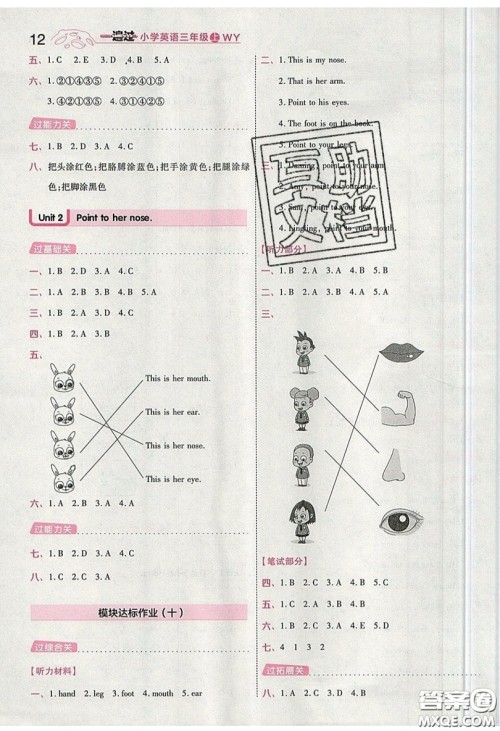 12 一遍过 小学英语三年级 上 WY
五、1. C 2. A 3. D 4. B 5. A
六、1. ②①④③⑤ 2. ①②④③⑤
3. ④②①③⑤ 4. ③④①②⑤
过能力关
七、1. B 2. D 3. A 4. C
八、把头涂红色;把胳膊涂蓝色;把手涂黄色;把腿涂绿
色;把脚涂黑色
Unit 2 Point to her nose.
过基础关
一、1. B 2. D 3. A 4. C
二、1. C 2. A 3. A 4. C
三、1. B 2. D 3. A 4. C
四、1. B 2. B 3. A 4. A
五、
This is her mouth.
This is her ear.
This is her nose.
This is her eye.
六、1. A 2. B 3. A 4. A
过能力关
七、1. B 2. C 3. D 4. A
八、1. C 2. A 3. B
模块达标作业（十）
过综合关
【听力材料】
一、1. hand 2. leg 3. foot 4. mouth 5. ear
二、1. This is my nose.
2. That is her arm.
3. Point to his eyes.
4. The foot is on the book.
5. Point to your legs.
三、1. , point to your arm.
2. Amy, point to your nose.
3. Sam, point to your eye.
4. Lingling, point to your mouth.
【听力部分】
一、1. B 2. A 3. A 4. B 5. A
二、1. B 2. A 3. B 4. A 5. B
三、
【笔试部分】
四、1. B 2. C 3. A 4. B 5. D
五、1. D 2. C 3. A 4. B
六、1. B 2. A 3. B 4. A 5. C
七、4 1 3 2
过拓展关
八、1. A 2. B 3. C 4. A
互助文档
答案圈
MXQE.COM